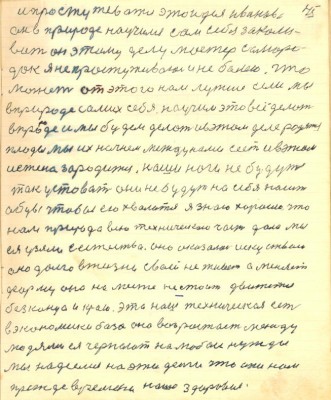 и простужевати это идея иванова
он в природе научился сам себя закали-
вать он этому делу мастер саморо-
док я не простуживаюсь и не болею. что
может от этого нам лутше если мы
в природе самих себя научим это всё делат
в природе и мы будем делат и в этом деле
плоды мы их начнем между нами сеет и в этом
истена зародится, наши ноги не будут
так уставать они не будут на себя носит
обувь чтобы ею хвалится я знаю хорошо что
нам природа всю техническою част дала мы
ея узяли с естества. она оказалас искуством
она долго в жизни своей не жила а меняет
форму она на месте не стоит движется
без конца и края. Это наше техническая сет
в экономики база она возрастает между
людями ея черпают на любои нужды
мы надеемся на эти денги что они нам
прежде вуременно наше здоровья.